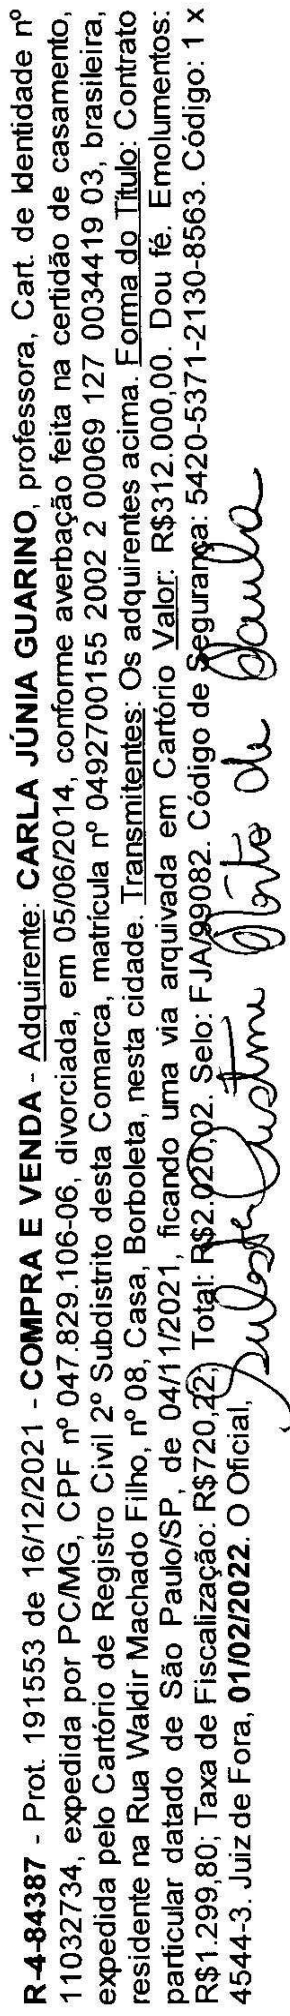 R-4-84387 - Prot. 191553 de 16/12/2021 - COMPRA E VENDA - Adquirente: CARLA JÚNIA GUARINO, professora, Cart. de Identidade nº
11032734, expedida por PC/MG, CPF nº 047.829.106-06, divorciada, em 05/06/2014, conforme averbação feita na certidão de casamento,
expedida pelo Cartório de Registro Civil 2º Subdistrito desta Comarca, matrícula nº 0492700155 2002 2 00069 127 0034419 03, brasileira,
residente na Rua Waldir Machado Filho, nº 08, Casa, Borboleta, nesta cidade. Transmitentes: Os adquirentes acima. Forma do Título: Contrato
particular datado de São Paulo/SP, de 04/11/2021, ficando uma via arquivada em Cartório Valor: R$312.000,00. Dou fé. Emolumentos:
R$1.299,80; Taxa de Fiscalização: R$720,22, Total: R$2.020,02. Selo: FJA/99082. Código de Segurança: 5420-5371-2130-8563. Código: 1 x
4544-3. Juiz de Fora, 01/02/2022. O Oficial,
de Paula